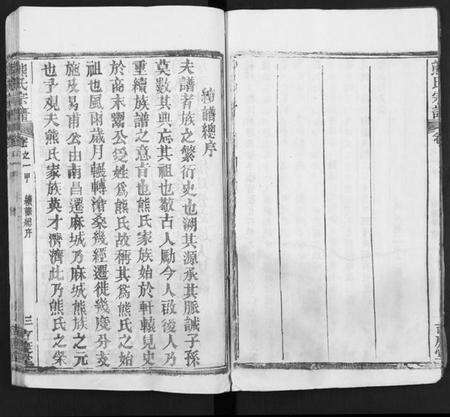 熊氏宗譜
卷
續譜總序
夫譜者族之繁衍史也溯其源承其脈誠子孫
莫數其典忘其祖也敬古人勵今人啟後人乃
重續族譜之意旨也熊氏家族始於軒轅兒史
於商末鬻公變姓為熊氏故稱其為熊氏之始
祖也風雨歲月輾轉滄桑幾經遷徙幾度分支
施及易甫公由南昌遷麻城乃麻城熊族之元
也予观天熊氏家族英才濟濟此乃熊氏之榮
熊氏宗譜
卷之一甲
續譜總序
三